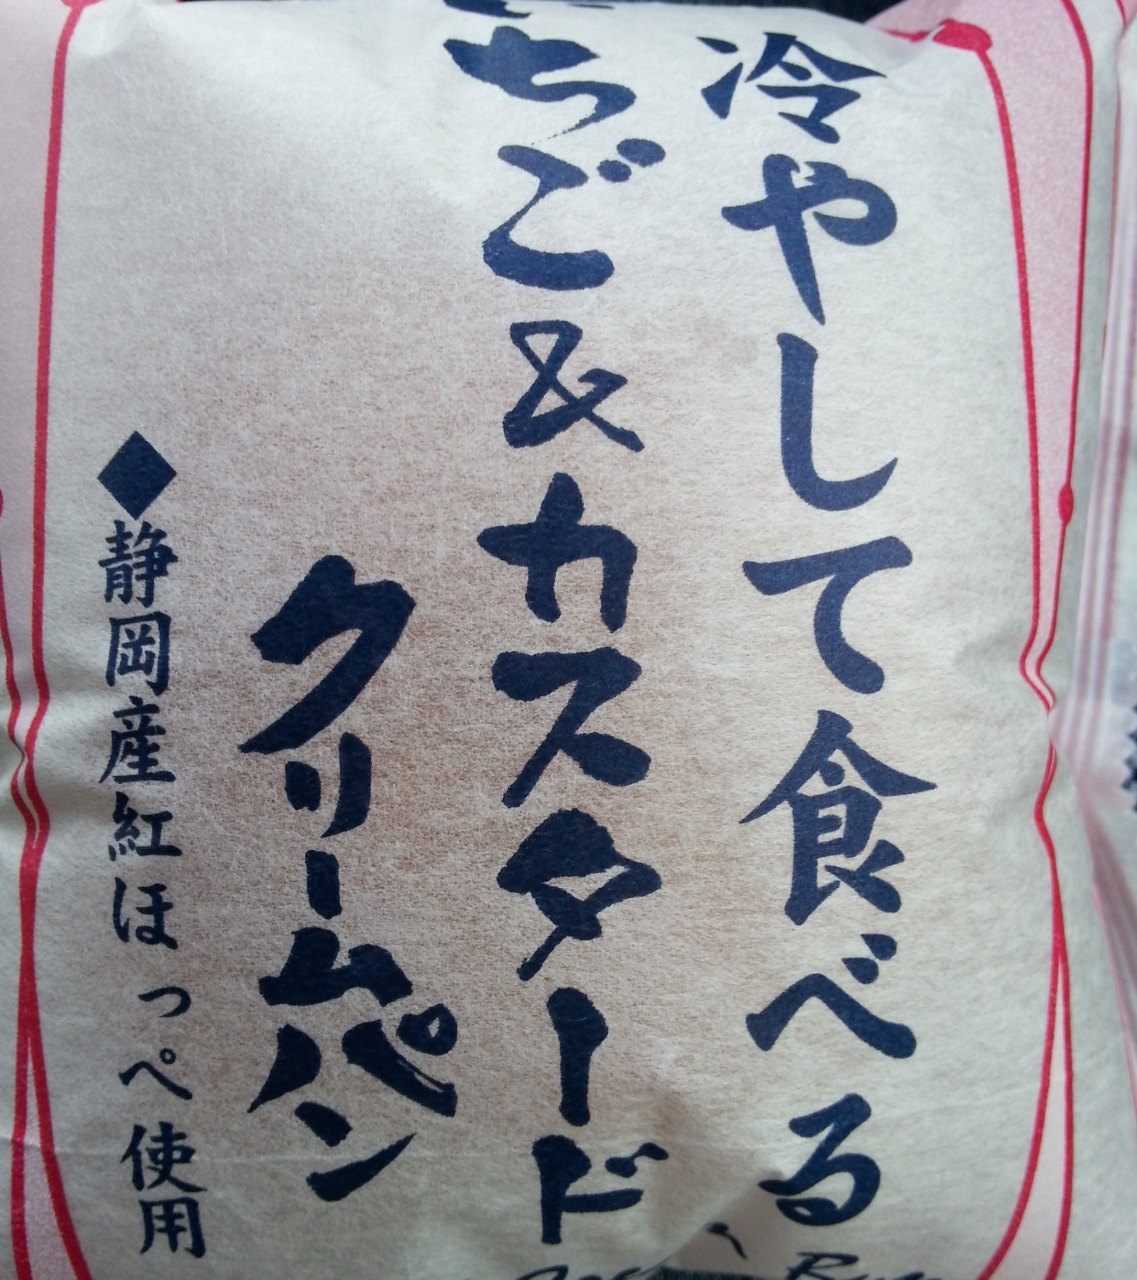 冷やして食べる
いちご&カスタード
クリームパン
◆静岡産紅ほっぺ使用